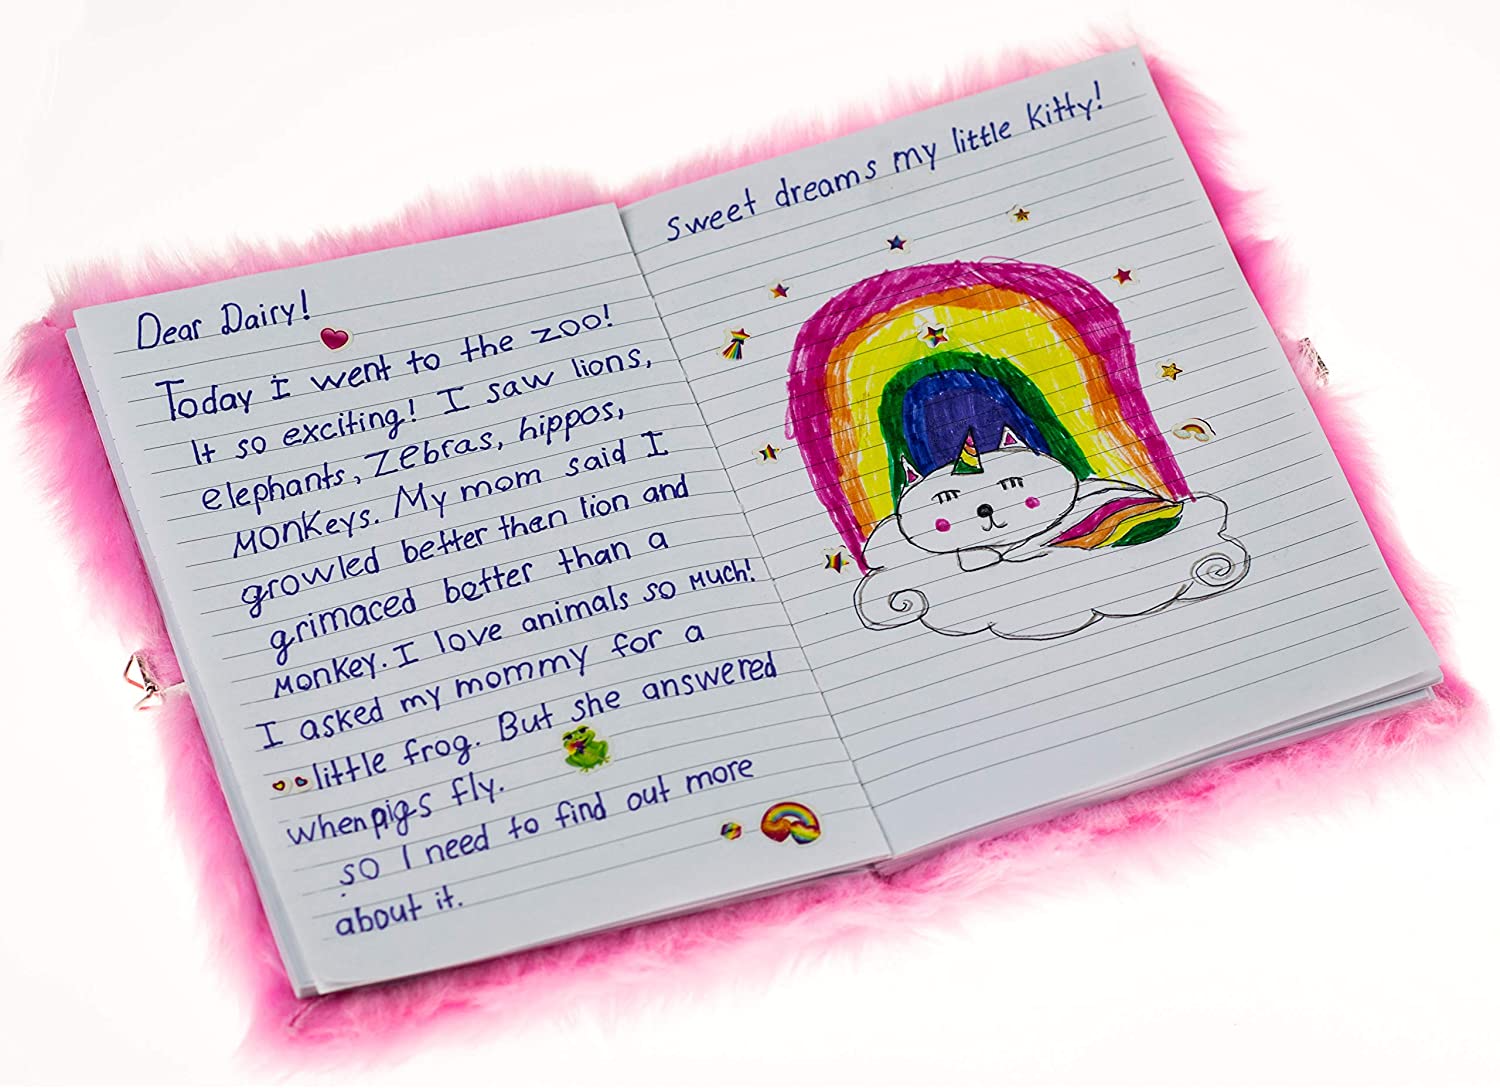 Dear Dairy!
Today i went to the zoo!
It so exciting! I saw lions,
elephants, zebras, hippos,
monkeys. My mom said I
growled better then lion and
grimaced better than a
monkey. I love animals so much!
I asked my mommy for a
little frog. But she answered
when pigs fly.
so I need to find out more
about it.
sweet dreams my little kitty!